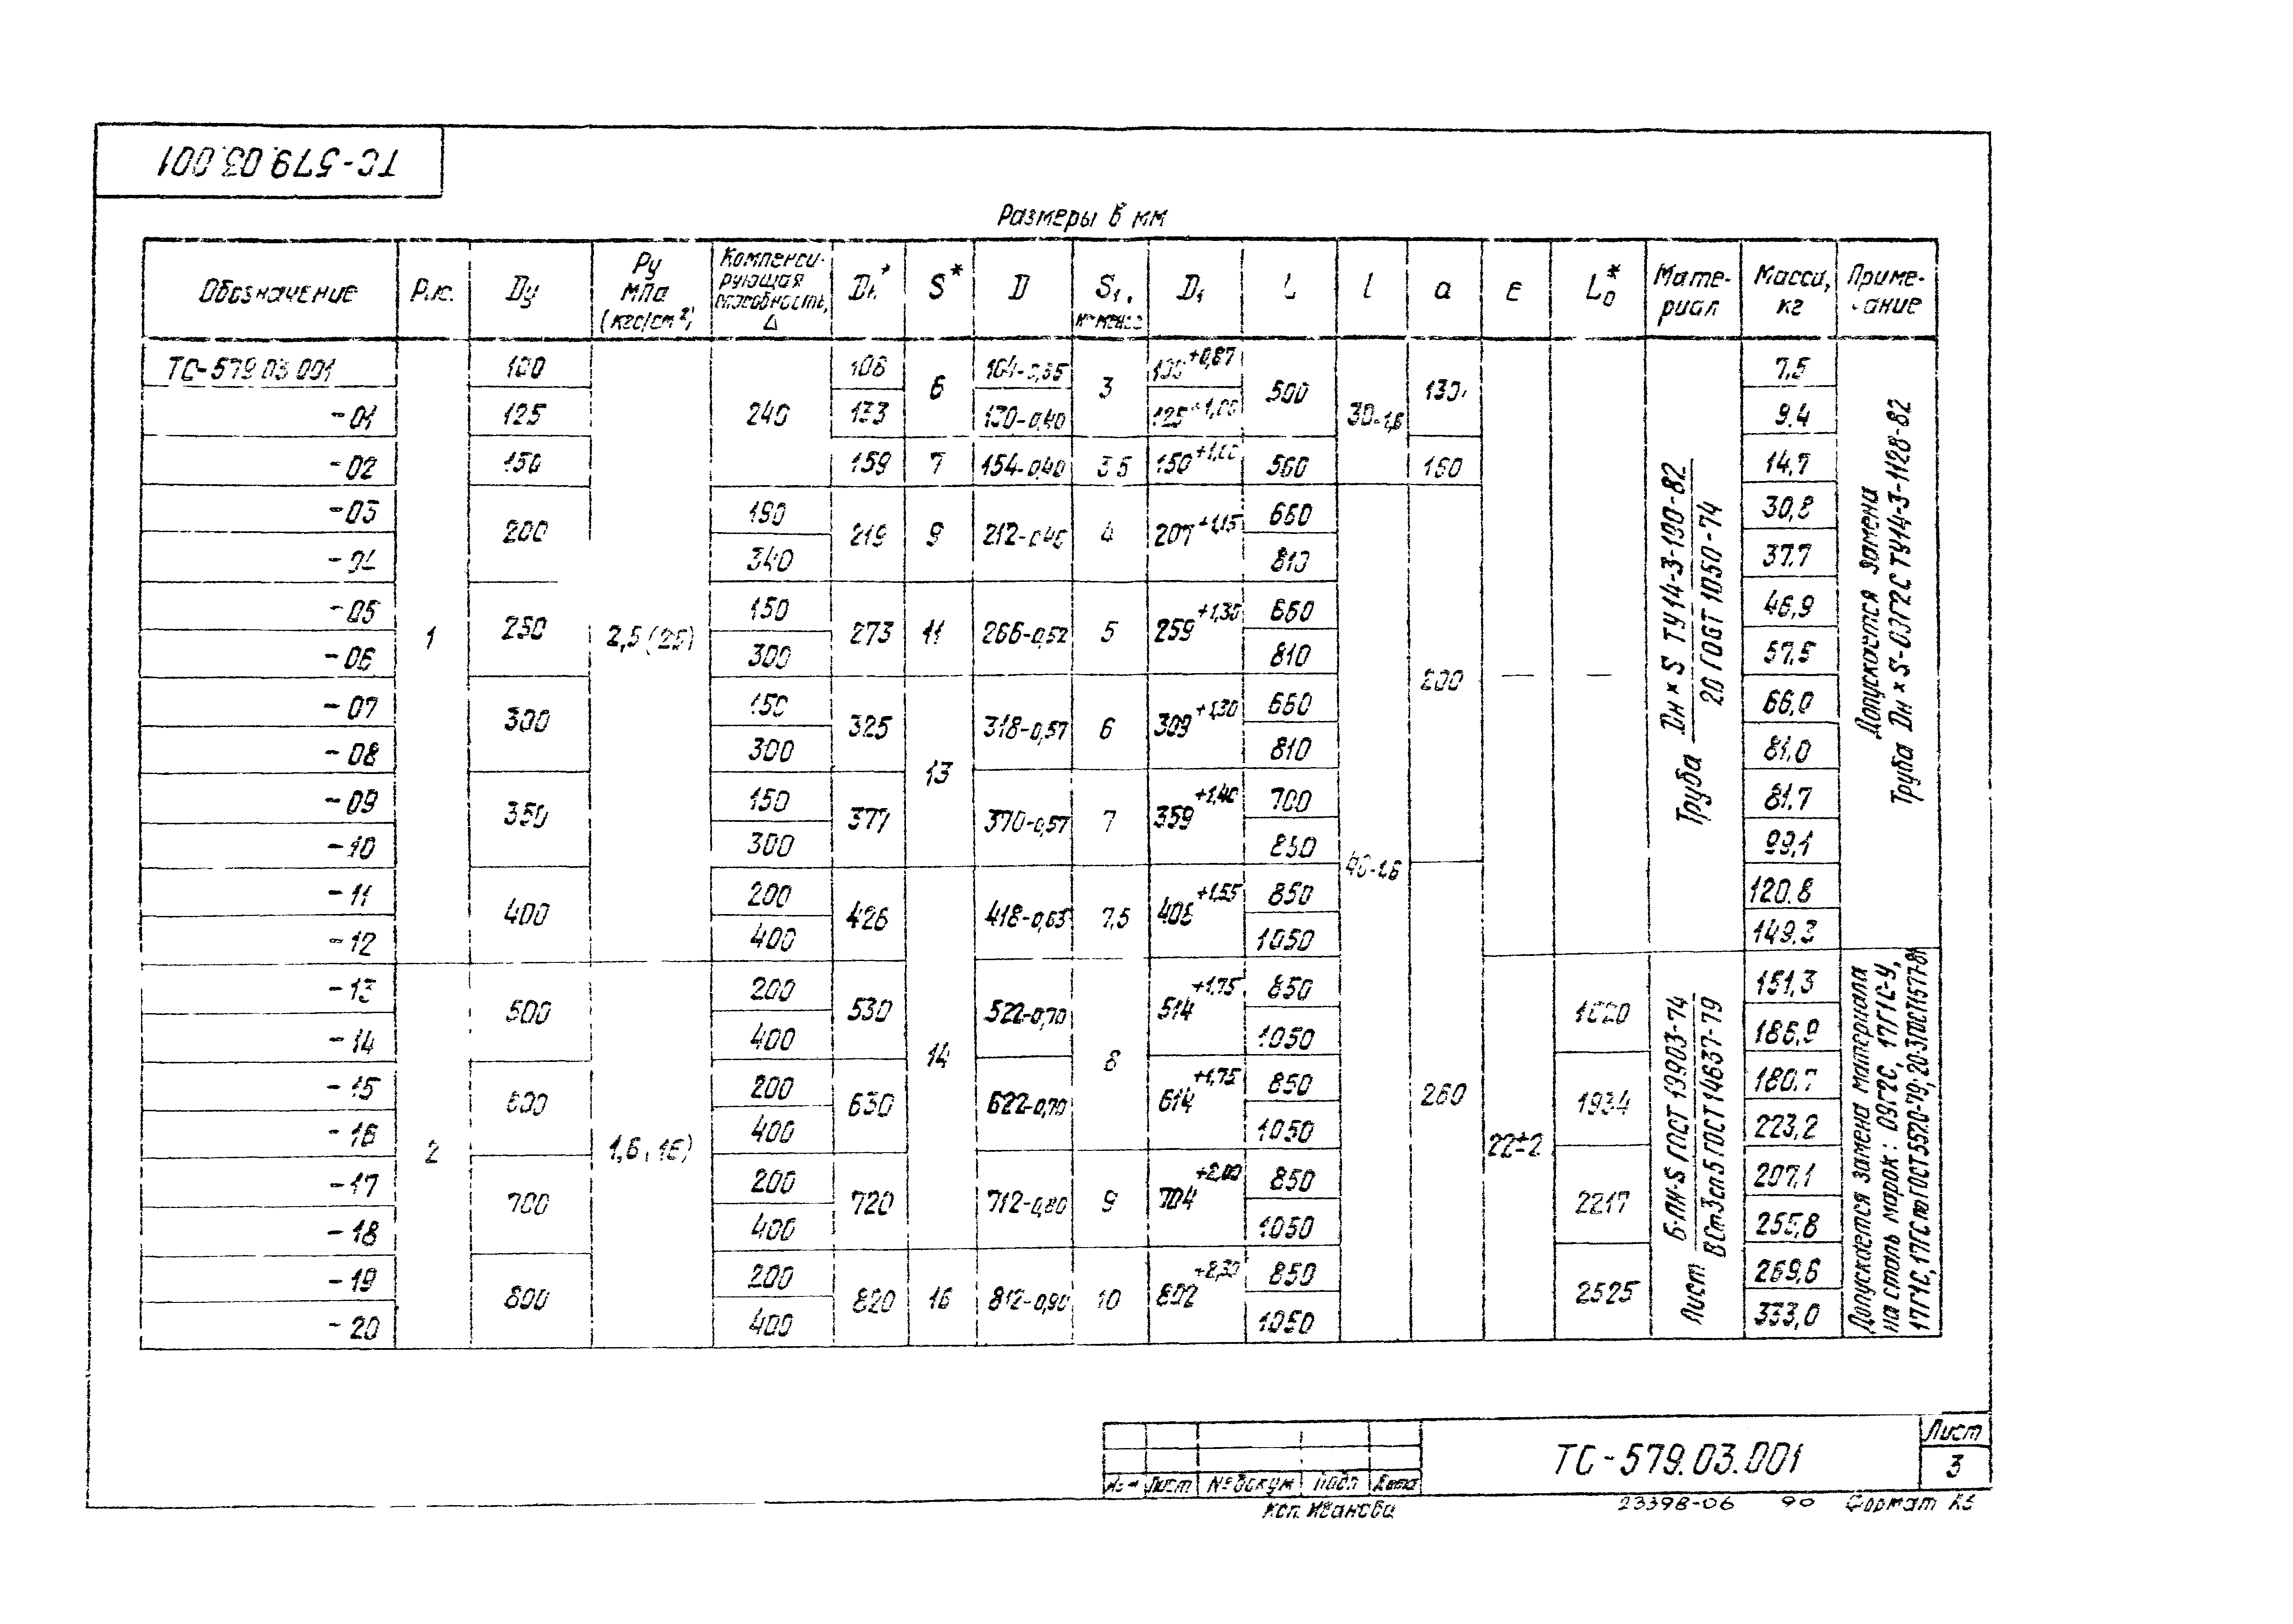 ТС-579.03.001
Размеры в мм
Обозначение Рис. Dу Ру МПа (кгс/см²) Компенси-рующая способность, Δ Dн* S* D S1, не менее D1 L l a E L0* Мате-риал Масса, кг Приме-чание
ТС-579.03.001 1 100 2,5(25) 240 108 6 104-0,35 3 100+0,87 500 30-1,6 130 — — 7,5
-01 125 133 130-0,40 125+1,00 9.4
-02 150 159 7 154-0,40 3,5 150+1,00 560 160 14,7
-03 200 190 219 9 212-0,46 4 207+1,15 660 40-1,6 200 30,8
-04 340 810 37.7
-05 250 150 273 11 266-0,52 5 259+1,30 660 46,9
-06 300 810 57.5
-07 300 150 325 13 318-0,57 6 309+1,30 660 66,0
-08 300 810 81,0
-09 350 150 377 370-0,57 7 359+1,40 700 81.7
-10 300 850 99,1
-11 400 200 426 14 418-0,63 7,5 406+1,55 850 260 120.8
-12 400 1050 149.3
-13 2 500 1,6(16) 200 530 522-0,70 8 514+1,75 850 22±2 1620 151,3
-14 400 1050 186,9
-15 600 200 630 622-0,70 614+1,75 850 1934 180.7
-16 400 1050 223,2
-17 700 200 720 712-0,80 9 704+2,00 850 2217 207,1
-18 400 1050 255,8
-19 800 200 820 16 812-0,90 10 802+2,30 850 2525 269,6
-20 400 1050 333,0
Труба Dн×S ТУ14-3-190-82
20 ГОСТ 1050-74
Допускается замена
Труба Dн×S-09Г2С ТУ14-3-1128-82
Лист Б-ПН-S ГОСТ 19903-74
ВСт3сп5 ГОСТ 14637-79
Допускается замена материала
на сталь марок: 09Г2С, 17Г1С-У,
17Г1С, 17ГС по ГОСТ 5520-79, 20-3 ГОСТ 1577-81
Изм Лист № докум Подп Дата
ТС-579.03.001
Лист
3
Коп. Иванова
23398-06 90 Формат А3